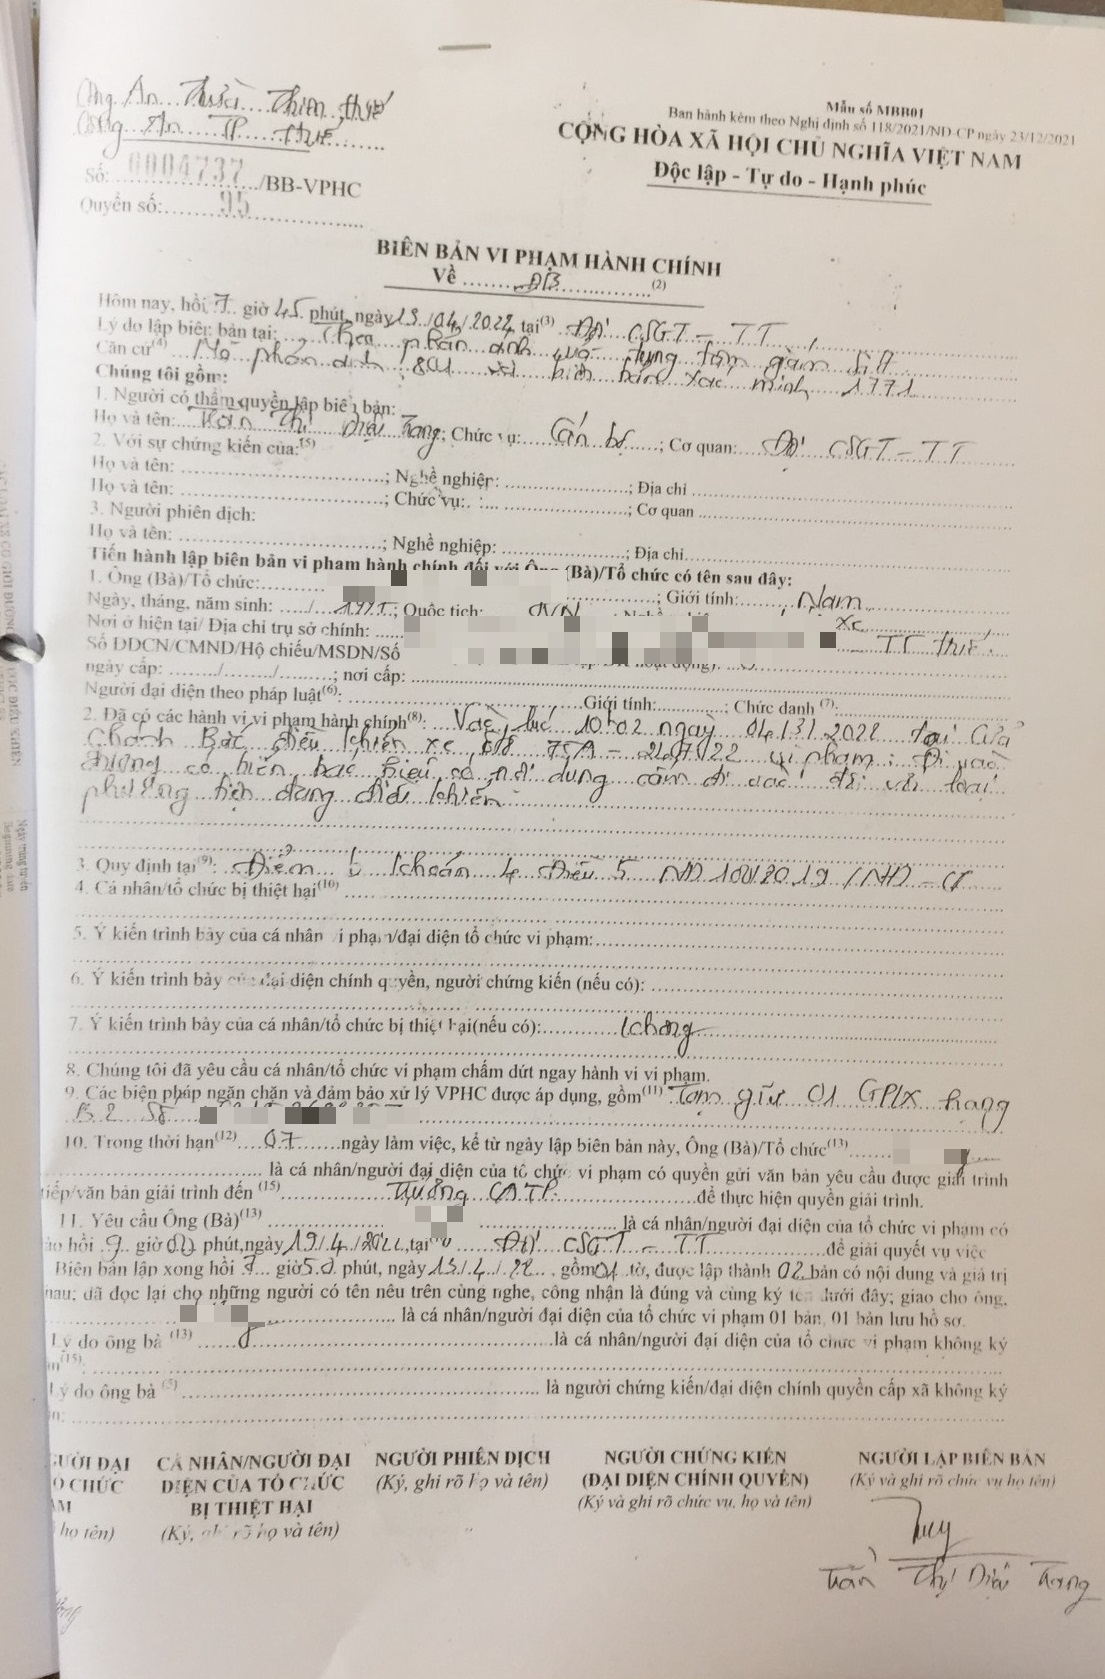 Công An Tỉnh Thừa Thiên Huế
Công An TP Huế
Số: 0004737/BB-VPHC
Quyển số: 95
Mẫu số MBB01
Ban hành kèm theo Nghị định số 118/2021/NĐ-CP ngày 23/12/2021
CỘNG HÒA XÃ HỘI CHỦ NGHĨA VIỆT NAM
Độc lập - Tự do - Hạnh phúc
BIÊN BẢN VI PHẠM HÀNH CHÍNH
Về ĐB (2)
Hôm nay, hồi 7 giờ 45 phút, ngày 13/04/2022, tại(3) Đội CSGT - TT
Lý do lập biên bản tại: Theo phản ánh
Căn cứ(4) phản ánh 801 và biên bản xác minh 1771
Chúng tôi gồm:
1. Người có thẩm quyền lập biên bản:
Họ và tên: Trần Thị Diệu Trang; Chức vụ: Cán bộ; Cơ quan: Đội CSGT - TT
2. Với sự chứng kiến của:(5)
Họ và tên: ; Nghề nghiệp: ; Địa chỉ
Họ và tên: ; Chức vụ: ; Cơ quan
3. Người phiên dịch:
Họ và tên: ; Nghề nghiệp: ; Địa chỉ
Tiến hành lập biên bản vi phạm hành chính đối với Ông (Bà)/Tổ chức có tên sau đây:
1. Ông (Bà)/Tổ chức: ; Giới tính: Nam
Ngày, tháng, năm sinh: ; Quốc tịch: VN
Nơi ở hiện tại/ Địa chỉ trụ sở chính: TT Huế
Số ĐDCN/CMND/Hộ chiếu/MSDN/Số
ngày cấp: / / ; nơi cấp:
Người đại diện theo pháp luật(6): Giới tính: ; Chức danh (7):
2. Đã có các hành vi vi phạm hành chính(8): Vào lúc 10h02 ngày 04/3/2022 tại Cửa
Chánh Bắc điều khiển xe ôtô 75A - vi phạm: Đi vào
đường có biển báo hiệu có nội dung cấm đi vào đối với loại
phương tiện đang điều khiển
3. Quy định tại(9): Điểm b khoản 4 Điều 5 NĐ 100/2019/NĐ-CP
4. Cá nhân/tổ chức bị thiệt hại(10)
5. Ý kiến trình bày của cá nhân vi phạm/đại diện tổ chức vi phạm:
6. Ý kiến trình bày của đại diện chính quyền, người chứng kiến (nếu có):
7. Ý kiến trình bày của cá nhân/tổ chức bị thiệt hại(nếu có): không
8. Chúng tôi đã yêu cầu cá nhân/tổ chức vi phạm chấm dứt ngay hành vi vi phạm.
9. Các biện pháp ngăn chặn và đảm bảo xử lý VPHC được áp dụng, gồm(11) Tạm giữ 01 GPLX hạng
B2 số
10. Trong thời hạn(12) 07 ngày làm việc, kể từ ngày lập biên bản này, Ông (Bà)/Tổ chức(13)
là cá nhân/người đại diện của tổ chức vi phạm có quyền gửi văn bản yêu cầu được giải trình
tiếp/văn bản giải trình đến (15) Trưởng CATP để thực hiện quyền giải trình.
11. Yêu cầu Ông (Bà)(13) là cá nhân/người đại diện của tổ chức vi phạm có
ào hồi 9 giờ 00 phút, ngày 19/4/2022, tại Đội CSGT - TT để giải quyết vụ việc
Biên bản lập xong hồi 7 giờ 50 phút, ngày 13/4/22, gồm 01 tờ, được lập thành 02 bản có nội dung và giá trị
nhau; đã đọc lại cho những người có tên nêu trên cùng nghe, công nhận là đúng và cùng ký tên dưới đây; giao cho ông,
là cá nhân/người đại diện của tổ chức vi phạm 01 bản, 01 bản lưu hồ sơ.
Lý do ông bà (13) là cá nhân/người đại diện của tổ chức vi phạm không ký
n(15):
Lý do ông bà (5) là người chứng kiến/đại diện chính quyền cấp xã không ký
n:
GƯỜI ĐẠI
Ổ CHỨC
ẠM
họ tên)
CÁ NHÂN/NGƯỜI ĐẠI
DIỆN CỦA TỔ CHỨC
BỊ THIỆT HẠI
(Ký, ghi rõ họ và tên)
NGƯỜI PHIÊN DỊCH
(Ký, ghi rõ họ và tên)
NGƯỜI CHỨNG KIẾN
(ĐẠI DIỆN CHÍNH QUYỀN)
(Ký và ghi rõ chức vụ, họ và tên)
NGƯỜI LẬP BIÊN BẢN
(Ký và ghi rõ chức vụ họ tên)
Trần Thị Diệu Trang